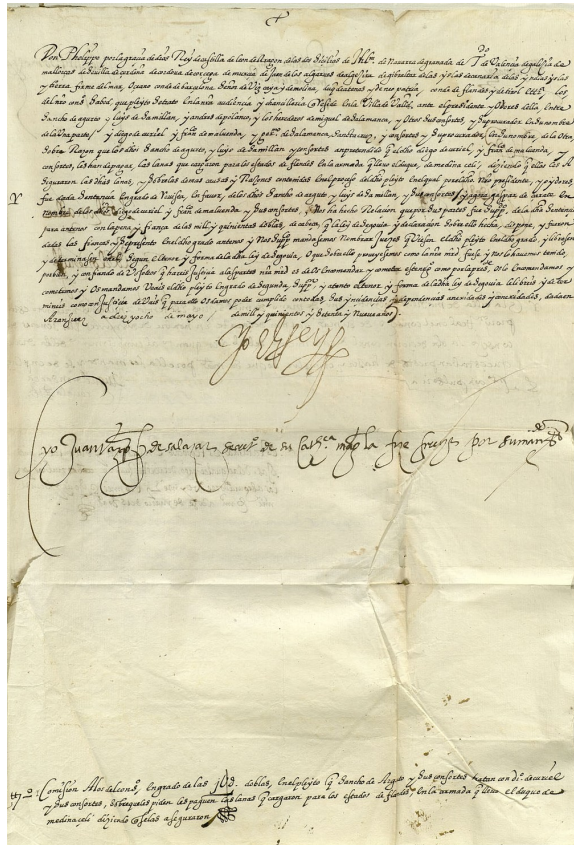 Don Phelippe por la gracia de dios Rey de castilla de leon de Aragon de las dos Sicilias de Jhlm. de Navarra de granada de Tdo. de Valencia de galizia de
mallorcas de Sevilla de cerdeña de cordova de corcega de murcia de Jaen de los algarves de algezira de gibraltar de las yslas de canaria de las yndias yslas
y tierra firme del mar Oceano conde de barcelona Señor de Vizcaya y de molina duq de atenas y de neopatria conde de flandes y de tirol etc. los
del nro cons. Sabed que pleyto Sea tratado en la nra audiencia y chancilleria q Reside en la Villa de Vallid. ante el presidente y Oydores della Entre
Sancho de agurto y luys de Samillan y andres de polanco y los herederos de miguel de Salamanca y Otros Sus consortes y Su procurador En Su nombre
de la Vna parte y diego de curiel y franco. de maluenda y de Salamanca y consortes y Su procurador En Su nombre de la Otra
Sobre Razon que los dhos Sancho de agurto y luys de Samillan y consortes an pretendido q el dho diego de curiel y franco. de maluenda y
consortes les han de pagar las lanas que cargaron para los estados de flandes En la armada q llevo el duque de medina celi diziendo q ellos los A
Seguraron las dhas lanas y Sobre las demas causas y Razones contenidas En el proceso del dho pleyto En el qual por el dho Nro presidente y oydores
fue dada Sentencia En grado de Revista En favor de los dhos Sancho de agurto y luys de Samillan y Sus consortes y agora gaspar de En
nombre de los dhos diego de curiel y franco. de maluenda y Sus consortes Nos ha hecho Relacion que por Sus partes fue Suppdo. de la dha Sentencia
para ante nos con la pena y fiança de las mill y quinientas doblas de cabeça q la ley de Segovia y declaracion Sobre ella hecha dispone y fueron
dadas las fianças y Se presento En el dho grado ante nos y Nos Suppco. mandasemos Nombrar Juezes q Viesen el dho pleyto En el dho grado y lo Viesen
y determinasen Segun El tenor y forma de la dha ley de Segovia o que Sobre ello proveyesemos como la nra md. fuese y Nos lo havemos tenido
por bien y confiando de Vosotros q hareis Justicia a las partes nra md es de Os Encomendar y cometer Esto como por la presente Os lo Encomendamos y
cometemos y Os mandamos Veais el dho pleyto En grado de Segunda Suppon. y atento el tenor y forma de la dha ley de Segovia le libreis y deter
mineis como en Justicia de Vais que para ello Os damos poder cumplido con todas Sus yncidencias y dependencias anexidades y conexidades dada en
Aranjuez a diez y ocho de mayo de mill y quinientos y Setenta y Nueve años
Yo el Rey
yo Juan Vazqz de Salazar Secreto. de su Cath.ca magd. la fize screvir por su mandado
Comision A los del cons.o En grado de las 1U500 doblas En el pleyto q Sancho de Agurto y Sus consortes tratan con d.o de curiel
y Sus consortes, Sobre que les piden les paguen las lanas q cargaron para los estados de flandes En la armada q llevo el duque de
medina celi diziendo q Se las aseguraron